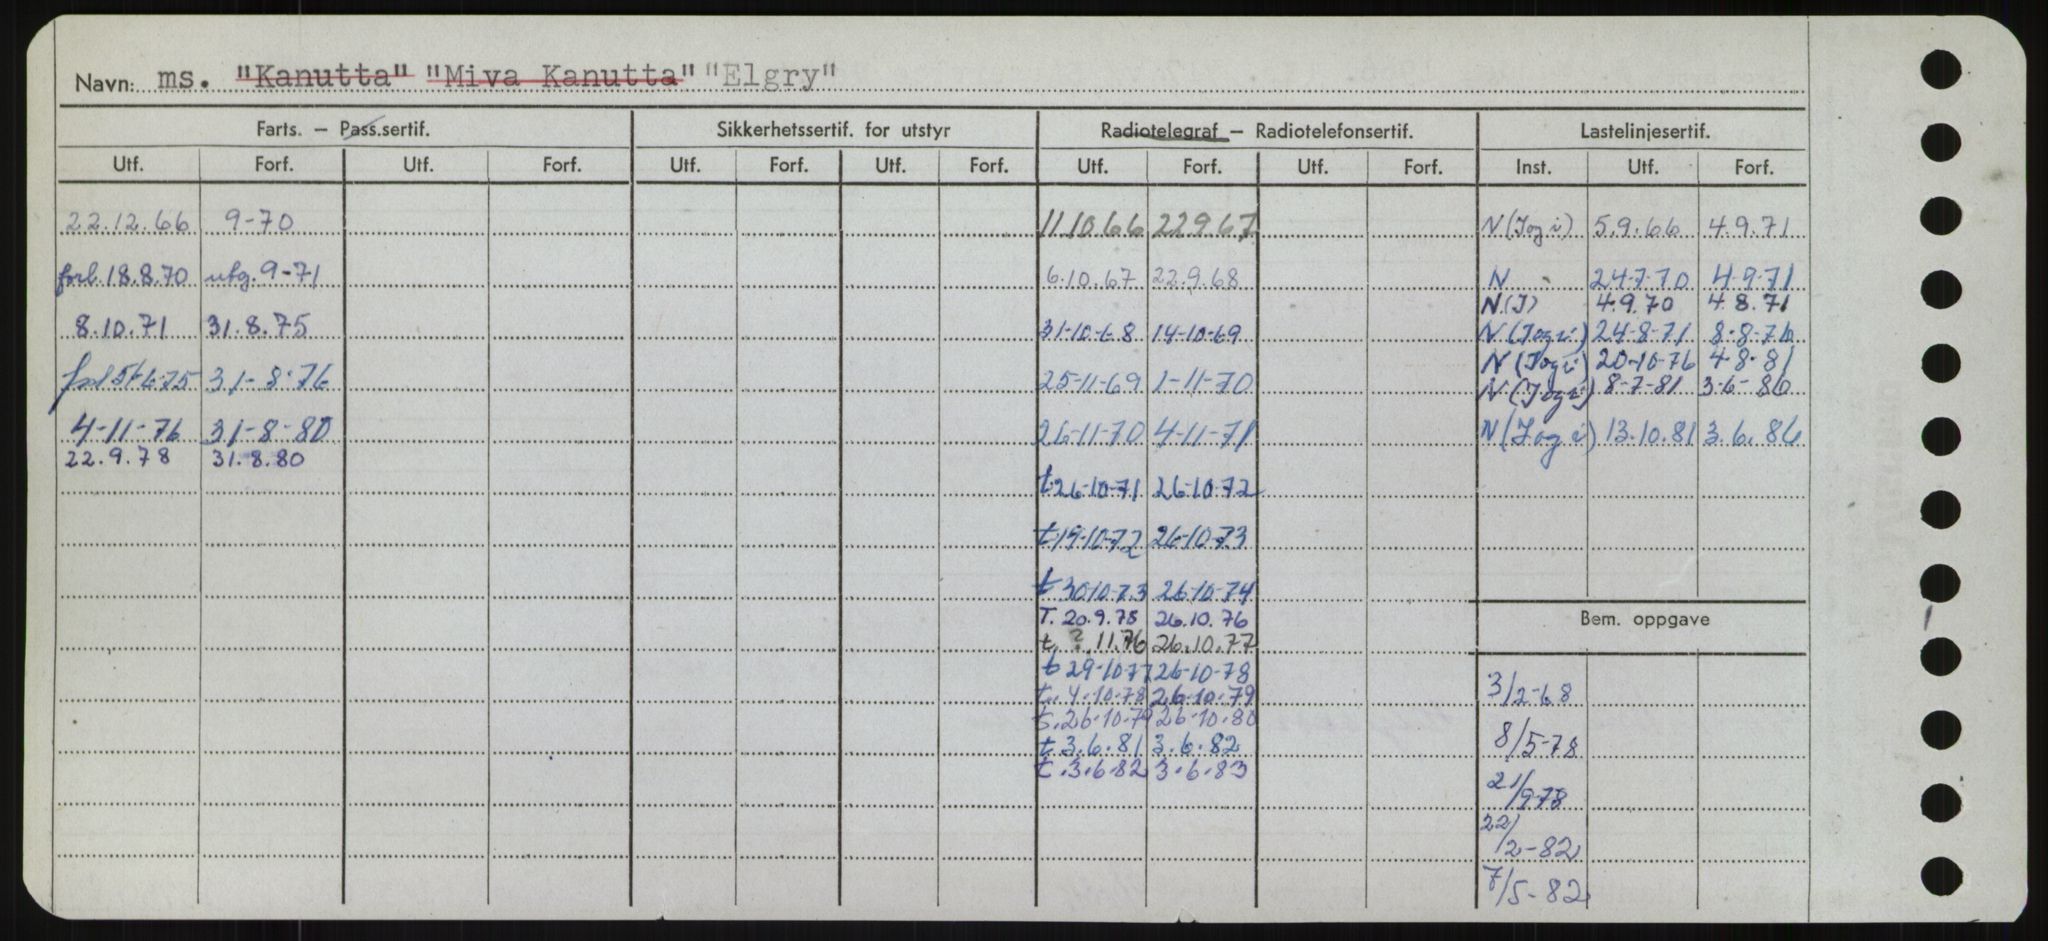 Navn: ms. "Kanutta" "Miva Kanutta" "Elgry"
Farts. – Pass.sertif. Sikkerhetssertif. for utstyr Radiotelegraf – Radiotelefonsertif. Lastelinjesertif.
Utf. Forf. Utf. Forf. Utf. Forf. Utf. Forf. Utf. Forf. Utf. Forf. Inst. Utf. Forf.
22.12.66 9-70 11.10.66 22.9.67 N (I og i) 5.9.66 4.9.71
forl. 18.8.70 utg. 9-71 6.10.67 22.9.68 N 24-7-70 4-9-71
N (I) 4.9.70 4.8.71
8.10.71 31.8.75 31-10-68 14-10-69 N (I og i) 24-8-71 8-8-76
N (I og i) 20-10-76 4-8-81
31-8-76 25-11-69 1-11-70 N (I og i) 8-7-81 3-6-86
4-11-76 31-8-80 26-11-70 4-11-71 N (I og i) 13.10.81 3.6.86
22.9.78 31.8.80
t. 26-10-71 26-10-72
t. 19-10-72 26-10-73
t 30-10-73 26-10-74
T. 20.9.75 26.10.76
t. ? 11.76 26.10.77
t 29-10-77 26-10-78
t. 4.10.78 26.10.79
t. 26-10-79 26-10-80
t 3.6.81 3.6.82
t. 3.6.82 3.6.83
Bem. oppgave
3/2-68
8/5-78
21/9-78
22/2-82
7/5-82